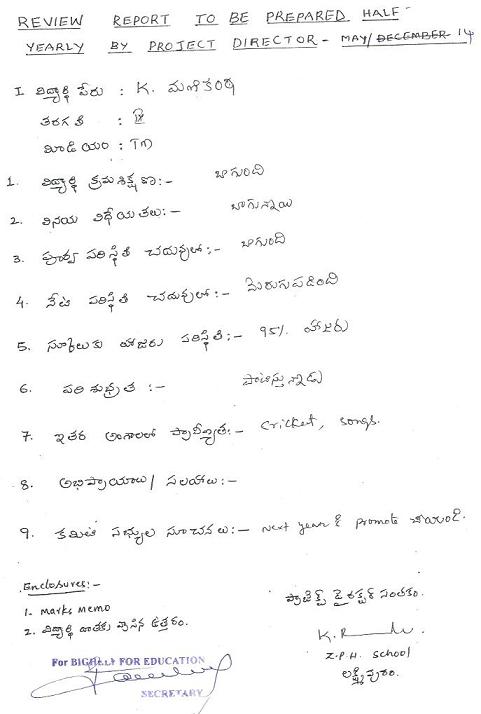 REVIEW REPORT TO BE PREPARED HALF
YEARLY BY PROJECT DIRECTOR - MAY/DECEMBER 14
I విద్యార్థి పేరు : K. మణికంఠ
తరగతి : IX
మీడియం : TM
1. విద్యార్థి క్రమశిక్షణ :- బాగుంది
2. వినయ విధేయతలు :- బాగున్నాయి
3. పూర్వ పరిస్థితి చదువులో :- బాగుంది
4. నేటి పరిస్థితి చదువులో :- మెరుగుపడింది
5. స్కూలుకు హాజరు పరిస్థితి :- 95% హాజరు
6. పరిశుభ్రత :- పాటిస్తున్నాడు
7. ఇతర అంశాలలో ప్రావీణ్యత :- Cricket, songs.
8. అభిప్రాయాలు / సలహాలు :-
9. కమిటీ సభ్యుల సూచనలు :- next year కి promote చేయండి.
Enclosures :-
1. Marks Memo
2. విద్యార్థి దాతకు వ్రాసిన ఉత్తరం.
ప్రాజెక్ట్ డైరెక్టర్ సంతకం.
Z.P.H. School
లక్ష్మీపురం.
For BIGHELP FOR EDUCATION
SECRETARY